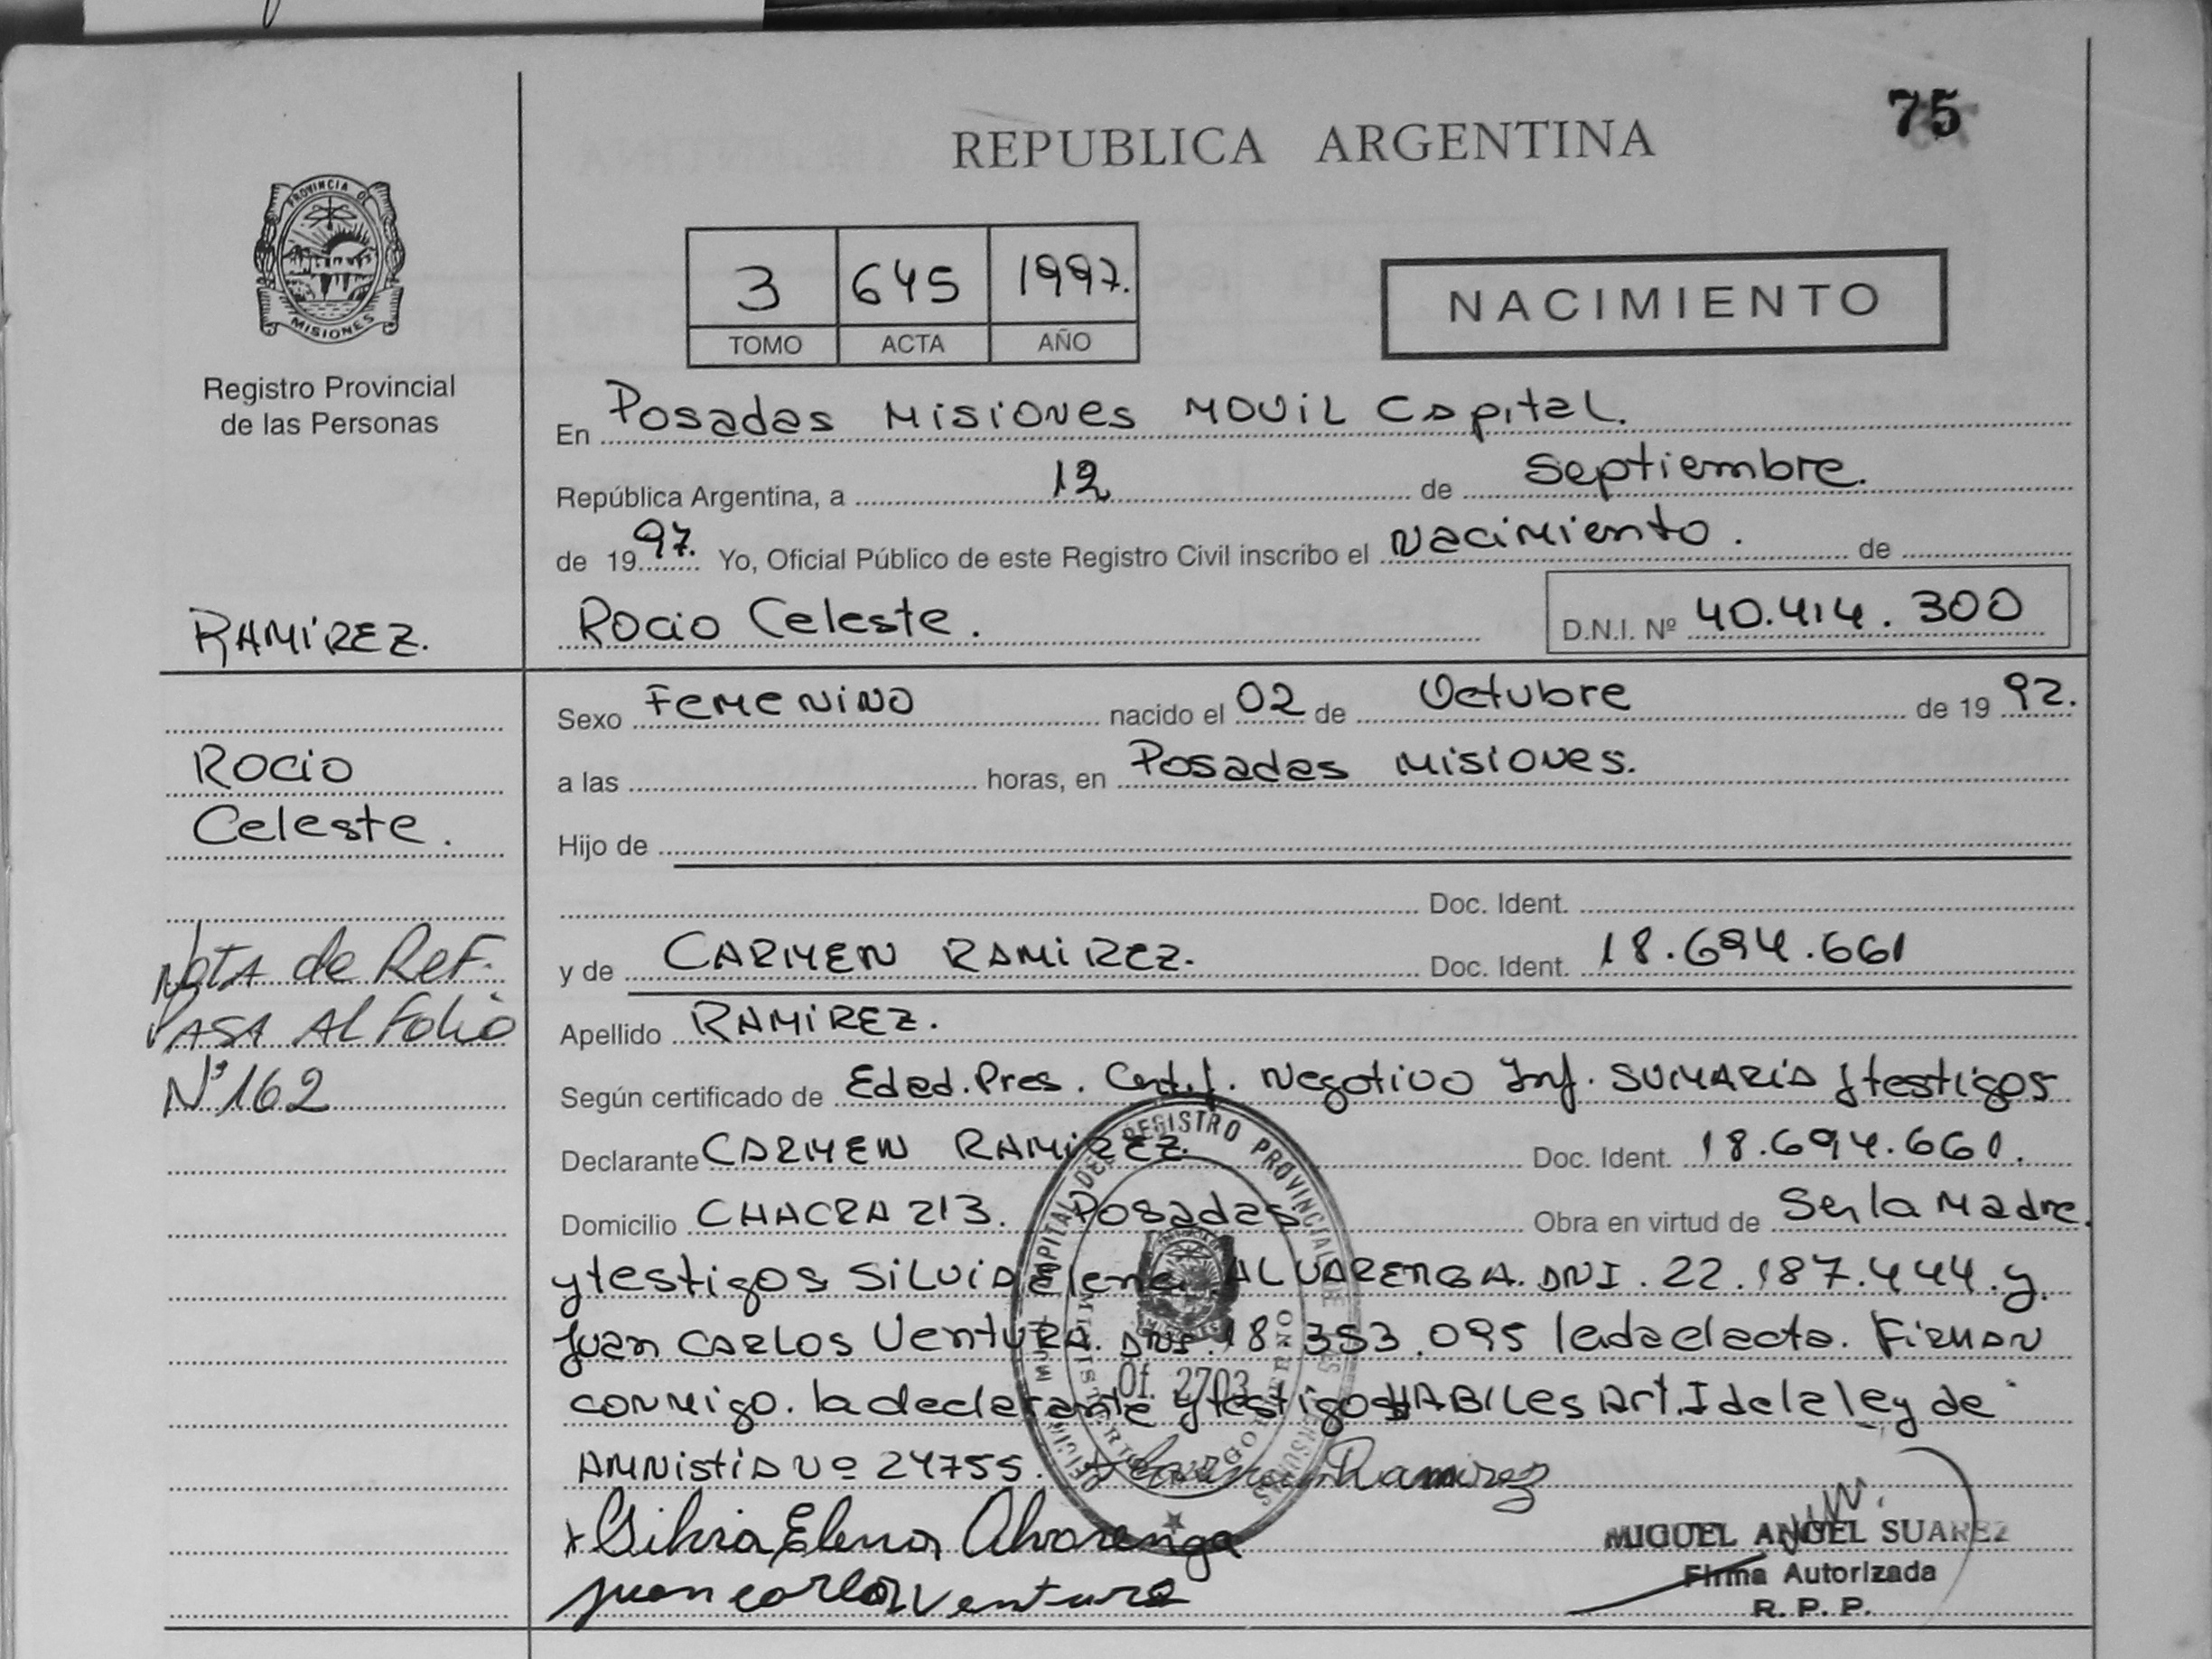 75
REPUBLICA ARGENTINA
PROVINCIA DE
MISIONES
Registro Provincial
de las Personas
3 645 1997.
TOMO ACTA AÑO
NACIMIENTO
En Posadas Misiones Movil Capital.
República Argentina, a 12 de Septiembre.
de 1997. Yo, Oficial Público de este Registro Civil inscribo el Nacimiento. de
RAMIREZ.
Rocio Celeste. D.N.I. Nº 40.414.300
Sexo Femenino nacido el 02 de Octubre de 1992.
Rocio
Celeste.
a las horas, en Posadas Misiones.
Hijo de
Doc. Ident.
Nota de Ref.
Pasa Al Folio
Nº 162
y de CARMEN RAMIREZ. Doc. Ident. 18.694.661
Apellido RAMIREZ.
Según certificado de Edad. Pres. Cert.f. Negativo Inf. SUMARIA y testigos
Declarante CARMEN RAMIREZ. Doc. Ident. 18.694.661.
Domicilio CHACRA 213. Posadas Obra en virtud de Ser la Madre.
y testigos Silvia Elena ALVARENGA. DNI. 22.187.444. y
Juan CARLOS VENTURA. DNI. 18.353.095 leida el acta. Firman
conmigo. la declarante y testigos HABILES Art. I de la ley de
AMNistia Nº 24755. Carmen Ramirez
x Silvia Elena Alvarenga
juan carlos ventura
MIGUEL ANGEL SUAREZ
Firma Autorizada
R. P. P.
REGISTRO PROVINCIAL DE LAS PERSONAS
Of. 2703